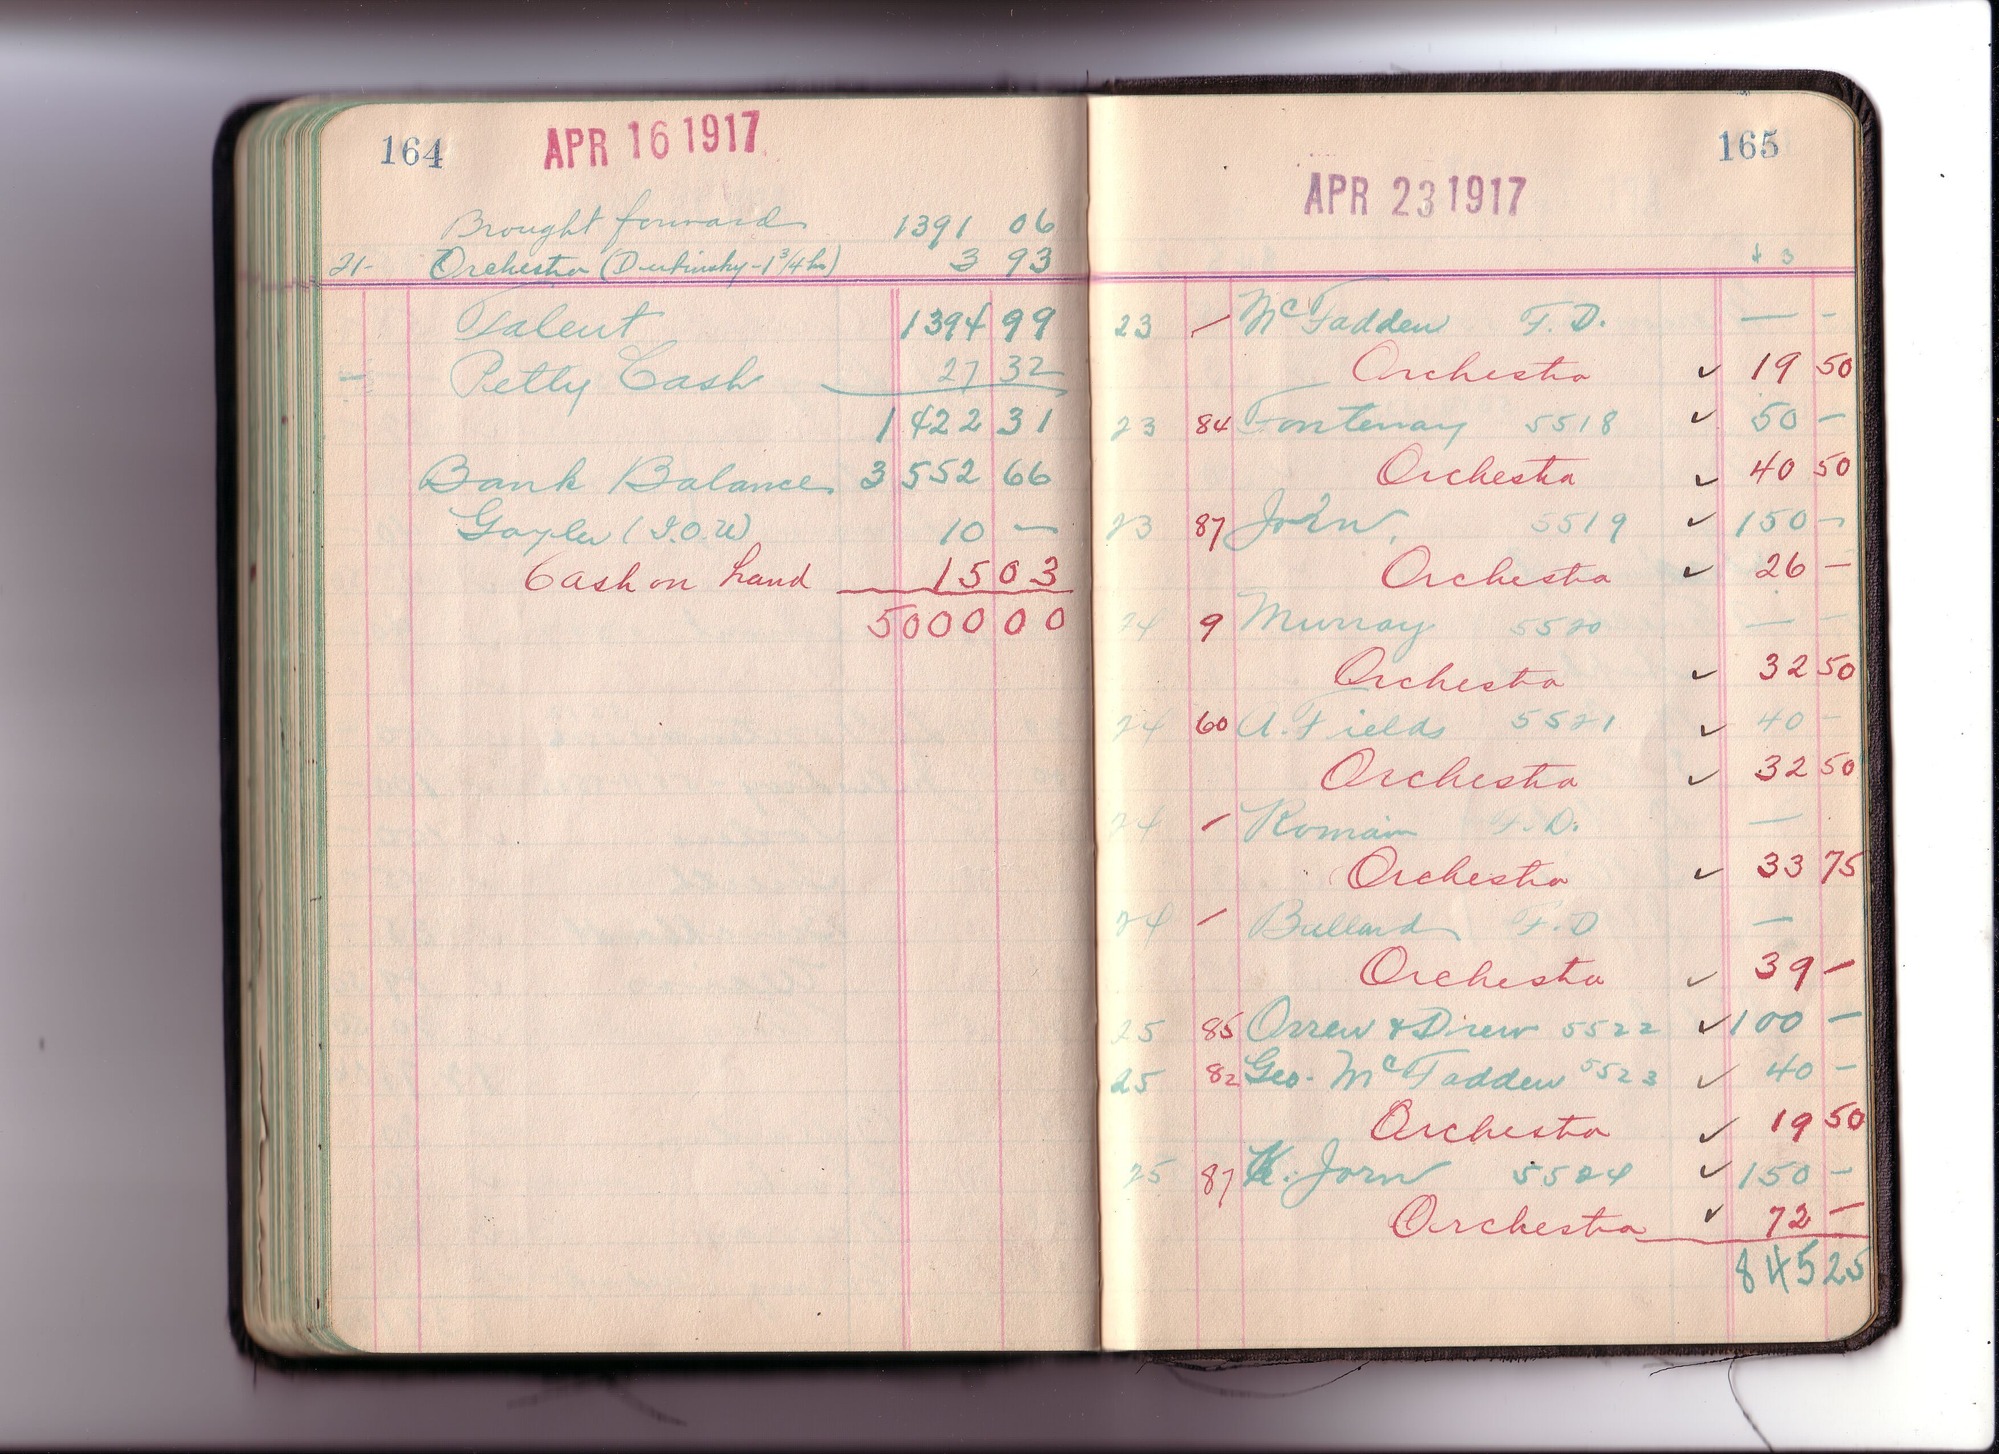 164
APR 16 1917
Brought forward 1391 06
21- Orchestra (Dubinsky-1 3/4 hr) 3 93
Talent 1394 99
Petty Cash 27 32
1422 31
Bank Balance 3552 66
Gayler (I.O.U) 10 —
Cash on hand 15 03
5000 00
165
APR 23 1917
23 / McFadden F.D. — -
Orchestra ✓ 19 50
23 84 Fontenay 5518 ✓ 50 —
Orchestra ✓ 40 50
23 87 Jörn. 5519 ✓ 150 —
Orchestra ✓ 26 —
24 9 Murray 5520 — —
Orchestra ✓ 32 50
24 60 A. Fields 5521 ✓ 40 -
Orchestra ✓ 32 50
24 / Romain F.D. —
Orchestra ✓ 33 75
24 / Bullard F.D —
Orchestra ✓ 39 —
25 85 Orren & Drew 5522 ✓ 100 —
25 82 Geo. McFadden 5523 ✓ 40 —
Orchestra ✓ 19 50
25 87 K. Jorn 5524 ✓ 150 —
Orchestra ✓ 72 —
845 25